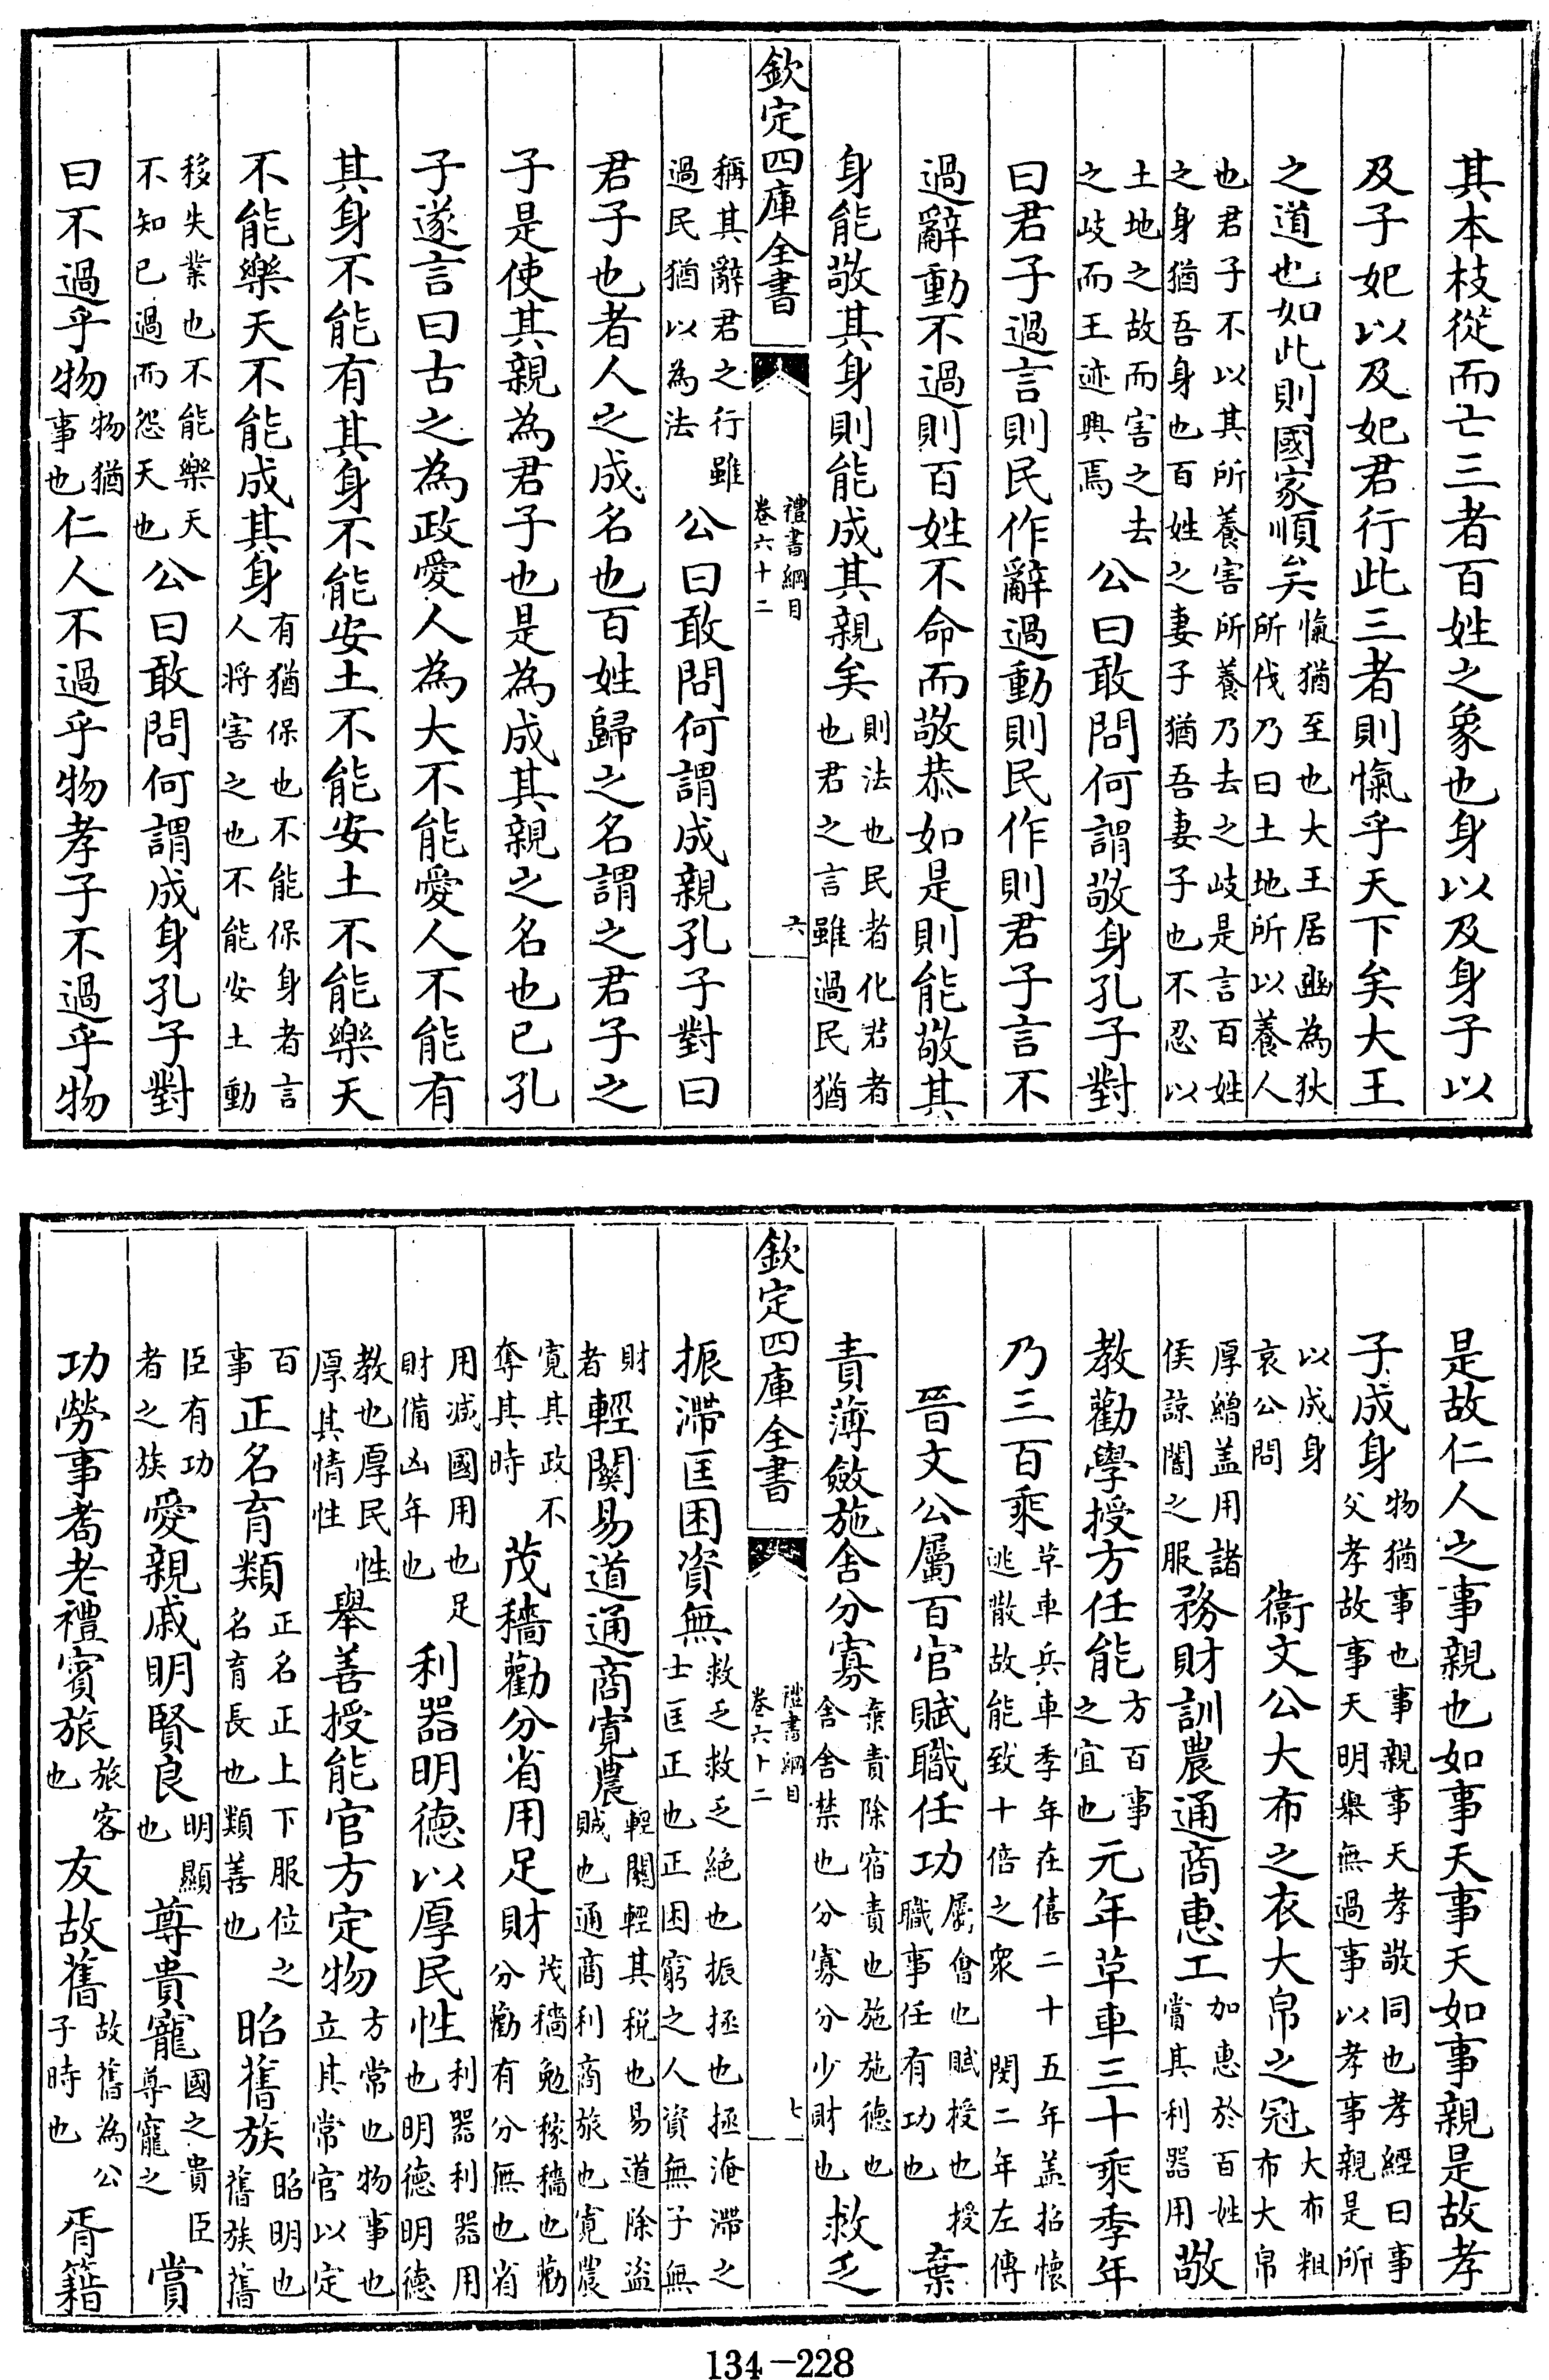 其本枝從而亡三者百姓之象也身以及身子以
及子妃以及妃君行此三者則愾乎天下矣大王
之道也如此則國家順矣愾猶至也大王居豳為狄所伐乃曰土地所以養人
也君子不以其所養害所養乃去之岐是言百姓之身猶吾身也百姓之妻子猶吾妻子也不忍以
土地之故而害之去之岐而王迹興焉公曰敢問何謂敬身孔子對
曰君子過言則民作辭過動則民作則君子言不
過辭動不過則百姓不命而敬恭如是則能敬其
身能敬其身則能成其親矣則法也民者化君者也君之言雖過民猶
欽定四庫全書
禮書綱目
卷六十二
六
稱其辭君之行雖過民猶以為法公曰敢問何謂成親孔子對曰
君子也者人之成名也百姓歸之名謂之君子之
子是使其親為君子也是為成其親之名也已孔
子遂言曰古之為政愛人為大不能愛人不能有
其身不能有其身不能安土不能安土不能樂天
不能樂天不能成其身有猶保也不能保身者言人將害之也不能安土動
移失業也不能樂天不知已過而怨天也公曰敢問何謂成身孔子對
曰不過乎物物猶事也仁人不過乎物孝子不過乎物
是故仁人之事親也如事天事天如事親是故孝
子成身物猶事也事親事天孝敬同也孝經曰事父孝故事天明舉無過事以孝事親是所
以成身哀公問衞文公大布之衣大帛之冠大布粗布大帛
厚繒盖用諸侯諒闇之服務財訓農通商惠工加惠於百姓賞其利器用敬
教勸學授方任能方百事之宜也元年草車三十乘季年
乃三百乘草車兵車季年在僖二十五年盖招懷迯散故能致十倍之衆閔二年左傳
晉文公屬百官賦職任功屬會也賦授也授職事任有功也棄
責薄斂施舍分寡棄責除宿責也施施德也舍舍禁也分寡分少財也救乏
欽定四庫全書
禮書綱目
卷六十二
七
振滯匡困資無救乏救乏絶也振拯也拯淹滯之士匡正也正困窮之人資無子無
財者輕關易道通商寛農輕關輕其税也易道除盜賊也通商利商旅也寛農
寛其政不奪其時茂穡勸分省用足財茂穡勉稼穡也勸分勸有分無也省
用減國用也足財備凶年也利器明德以厚民性利器利器用也明德明德
教也厚民性厚其情性舉善授能官方定物方常也物事也立其常官以定
百事正名育類正名正上下服位之名育長也類善也昭舊族昭明也舊族舊
臣有功者之族愛親戚明賢良明顯也尊貴寵國之貴臣尊寵之賞
功勞事耉老禮賓旅旅客也友故舊故舊為公子時也胥籍
134-228